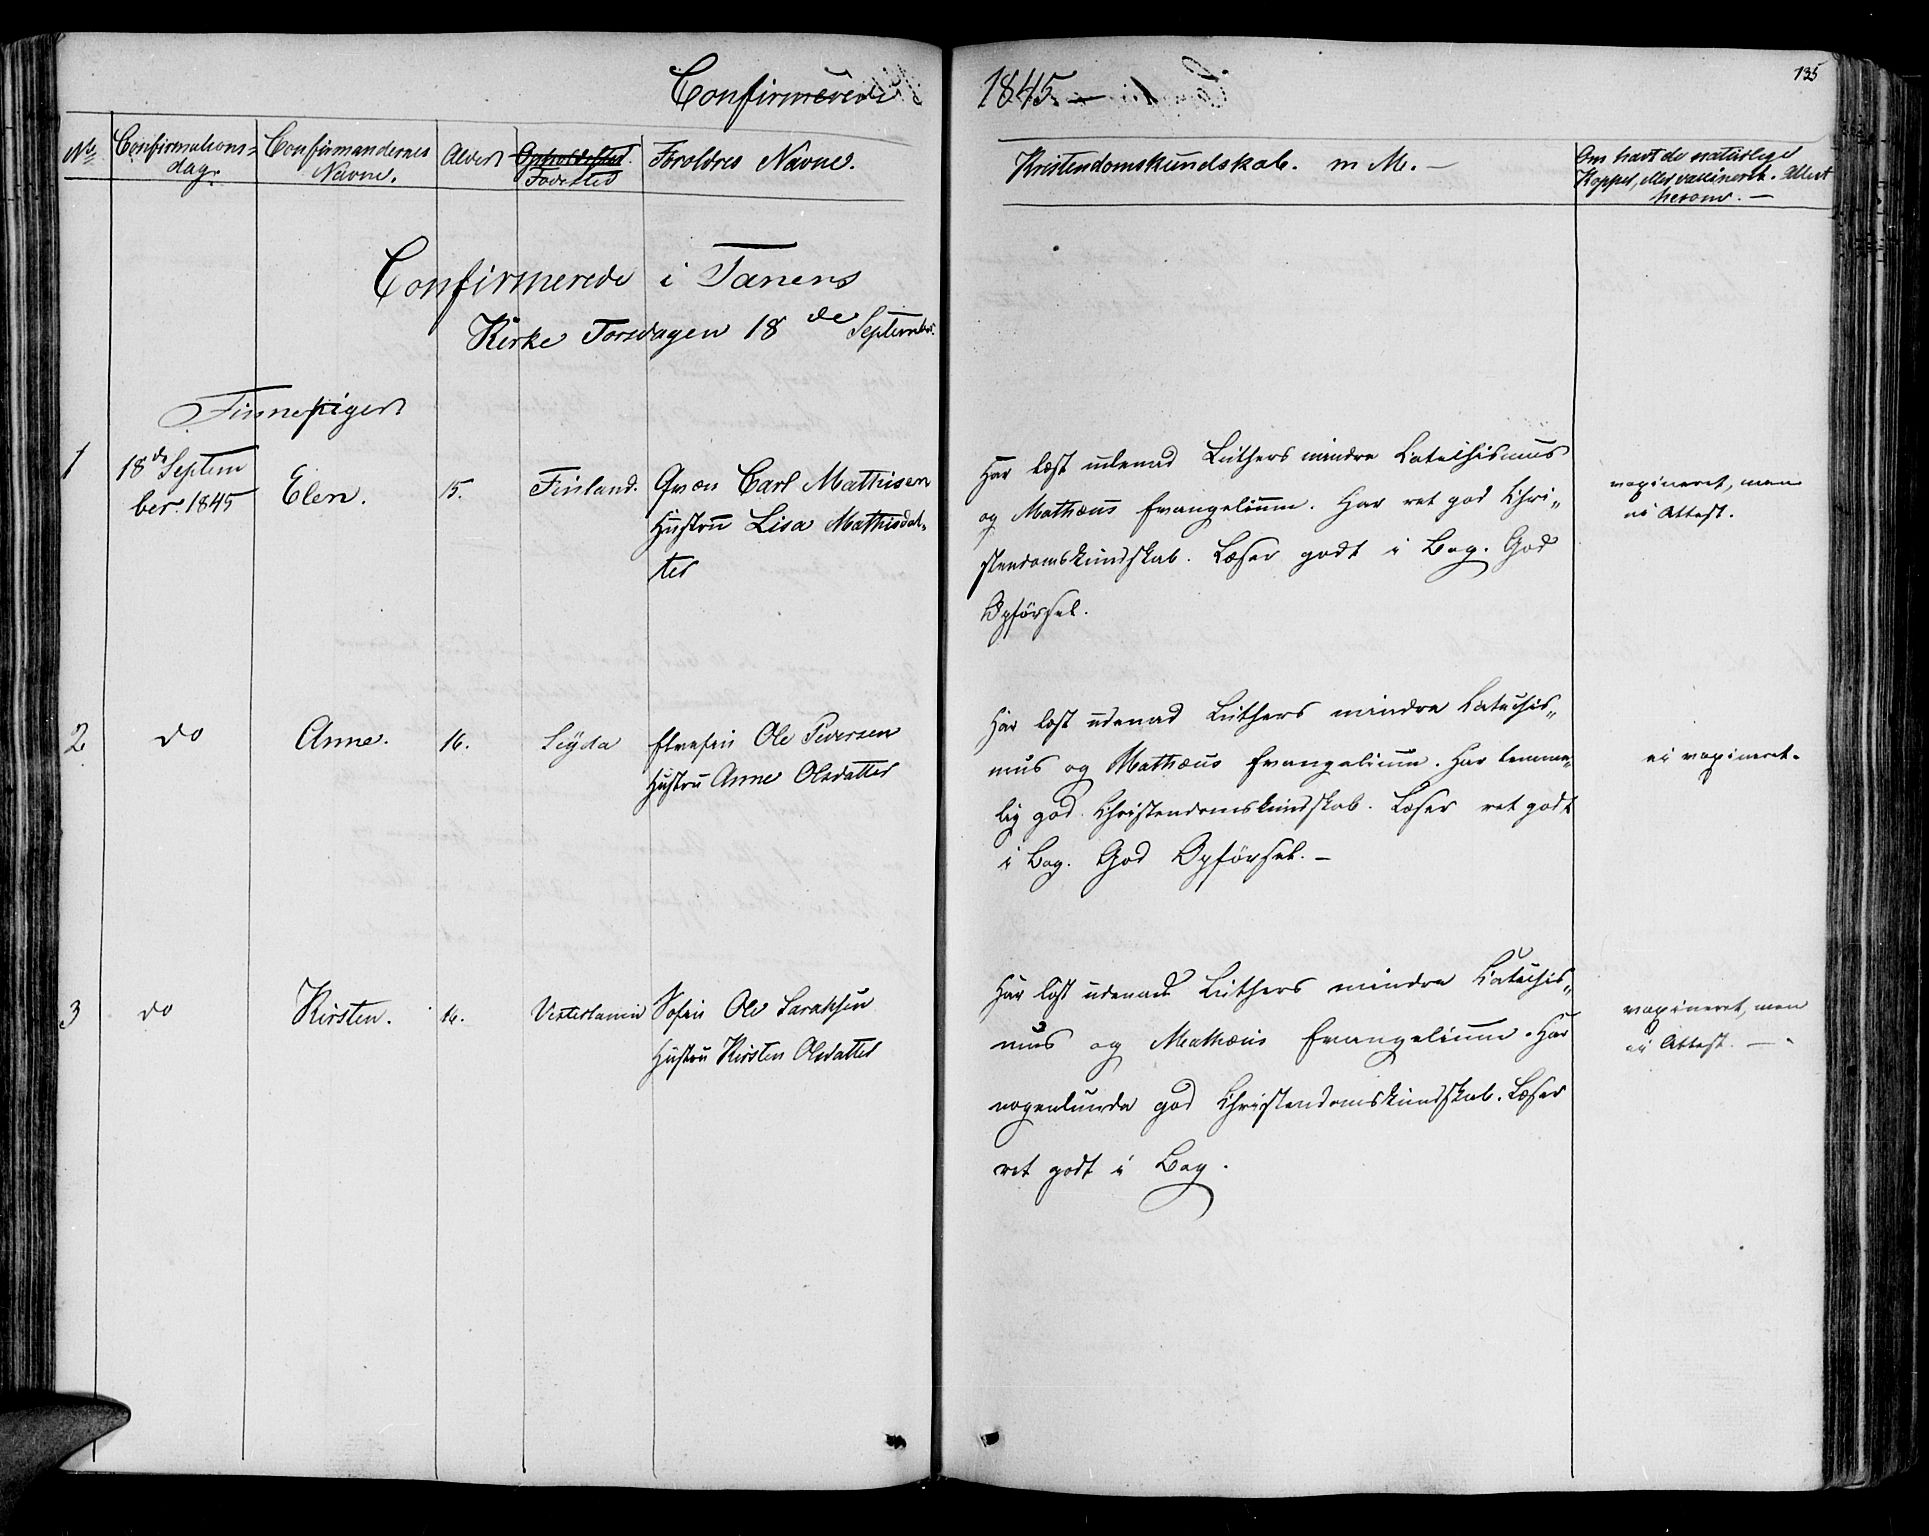 Confirmerede 1845 —
135
No
Confirmations=
dag.
Confirmandernes
Navne.
Alder
Opholdsted.
Fødested
Forældres Navne.
Kristendomskundskab. m M. —
Om havt de naturlige
Kopper, eller vaccineret. Attest
herom. —
Confirmerede i Tanens
Kirke Torsdagen 18de Septembr.
Finnepiger
1
18de Septem
ber. 1845
Elen.
15.
Finland.
Qvæn Carl Mathisen
Hustru Lisa Mathisdat-
ter
Har læst udenad Luthers mindre Catechismus
og Mathæus Evangelium. Har ret god Chri„
stendomskundskab. Læser godt i Bog. God
Opførsel.
vaxineret, men
ei Attest.
2
do
Anne.
16.
Leÿda
Elvefin Ole Pedersen
Hustru Anne Olsdatter
Har læst udenad Luthers mindre Catechis„
mus og Mathæus Evangelium. Har temme„
lig god Christendomskundskab. Læser ret godt
i Bog. God Opførsel. —
ei vaxineret.
3
do
Kirsten.
16.
Vestertanen
Søfin Ole
Hustru Kirsten Olsdatter
Har læst udenad Luthers mindre Catechis„
mus og Mathæus Evangelium. Har
nogenlunde god Christendomskundskab. Læser
ret godt i Bog.
vaxineret, men
ei Attest. —